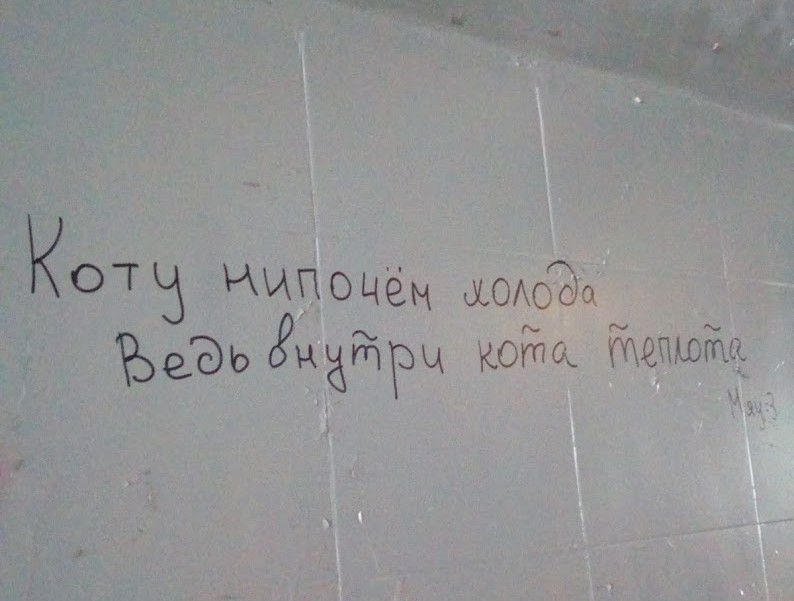 Коту нипочём холода
Ведь внутри кота теплота
Мяу:3